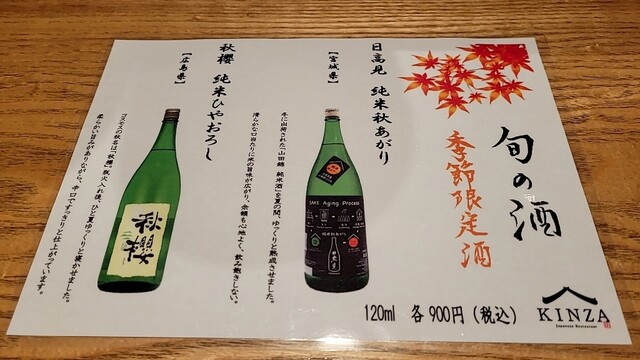 旬の酒
季節限定酒
日高見 純米秋あがり
【宮城県】
冬に出荷された「山田錦 純米酒」を夏の間、ゆっくりと熟成させました。
清らかな口当たりに米の旨味が広がり、余韻も心地よく、飲み飽きしない。
SAKE Aging Process
秋櫻 純米ひやおろし
【広島県】
コスモスの秋名は「秋櫻」。瓶火入れ後、ひと夏ゆっくりと寝かせました。
柔らかい旨みがありながら、辛口ですっきりと仕上がっています。
秋櫻
120ml 各900円(税込)
KINZA
Japanese Restaurant